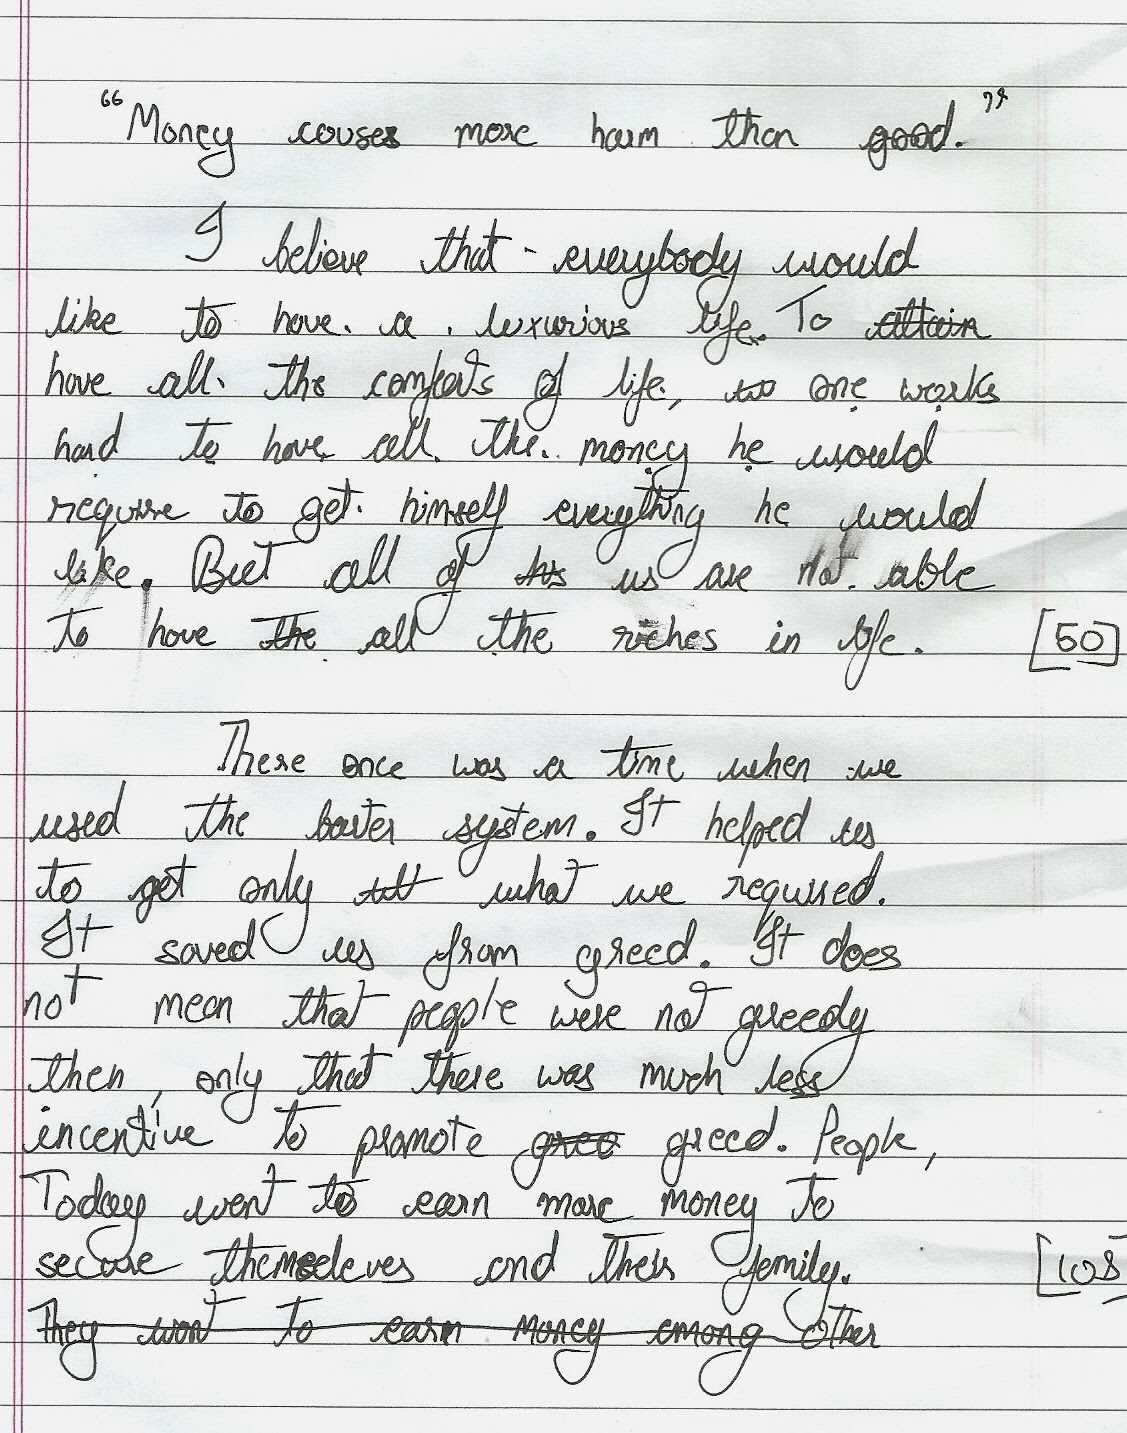 "Money causes more harm than good."
I believe that everybody would
like to have a luxurious life. To ~~attain~~
have all the comforts of life, ~~wo~~ one works
hard to have all the money he would
require to get himself everything he would
like. But all of ~~this~~ us are not able
to have ~~the~~ all the riches in life. [50]
There once was a time when we
used the barter system. It helped us
to get only what we required.
It saved us from greed. It does
not mean that people were not greedy
then, only that there was much less
incentive to promote ~~gree~~ greed. People,
Today want to earn more money to
secure themseleves and their family. [108
~~They want to earn money among other~~